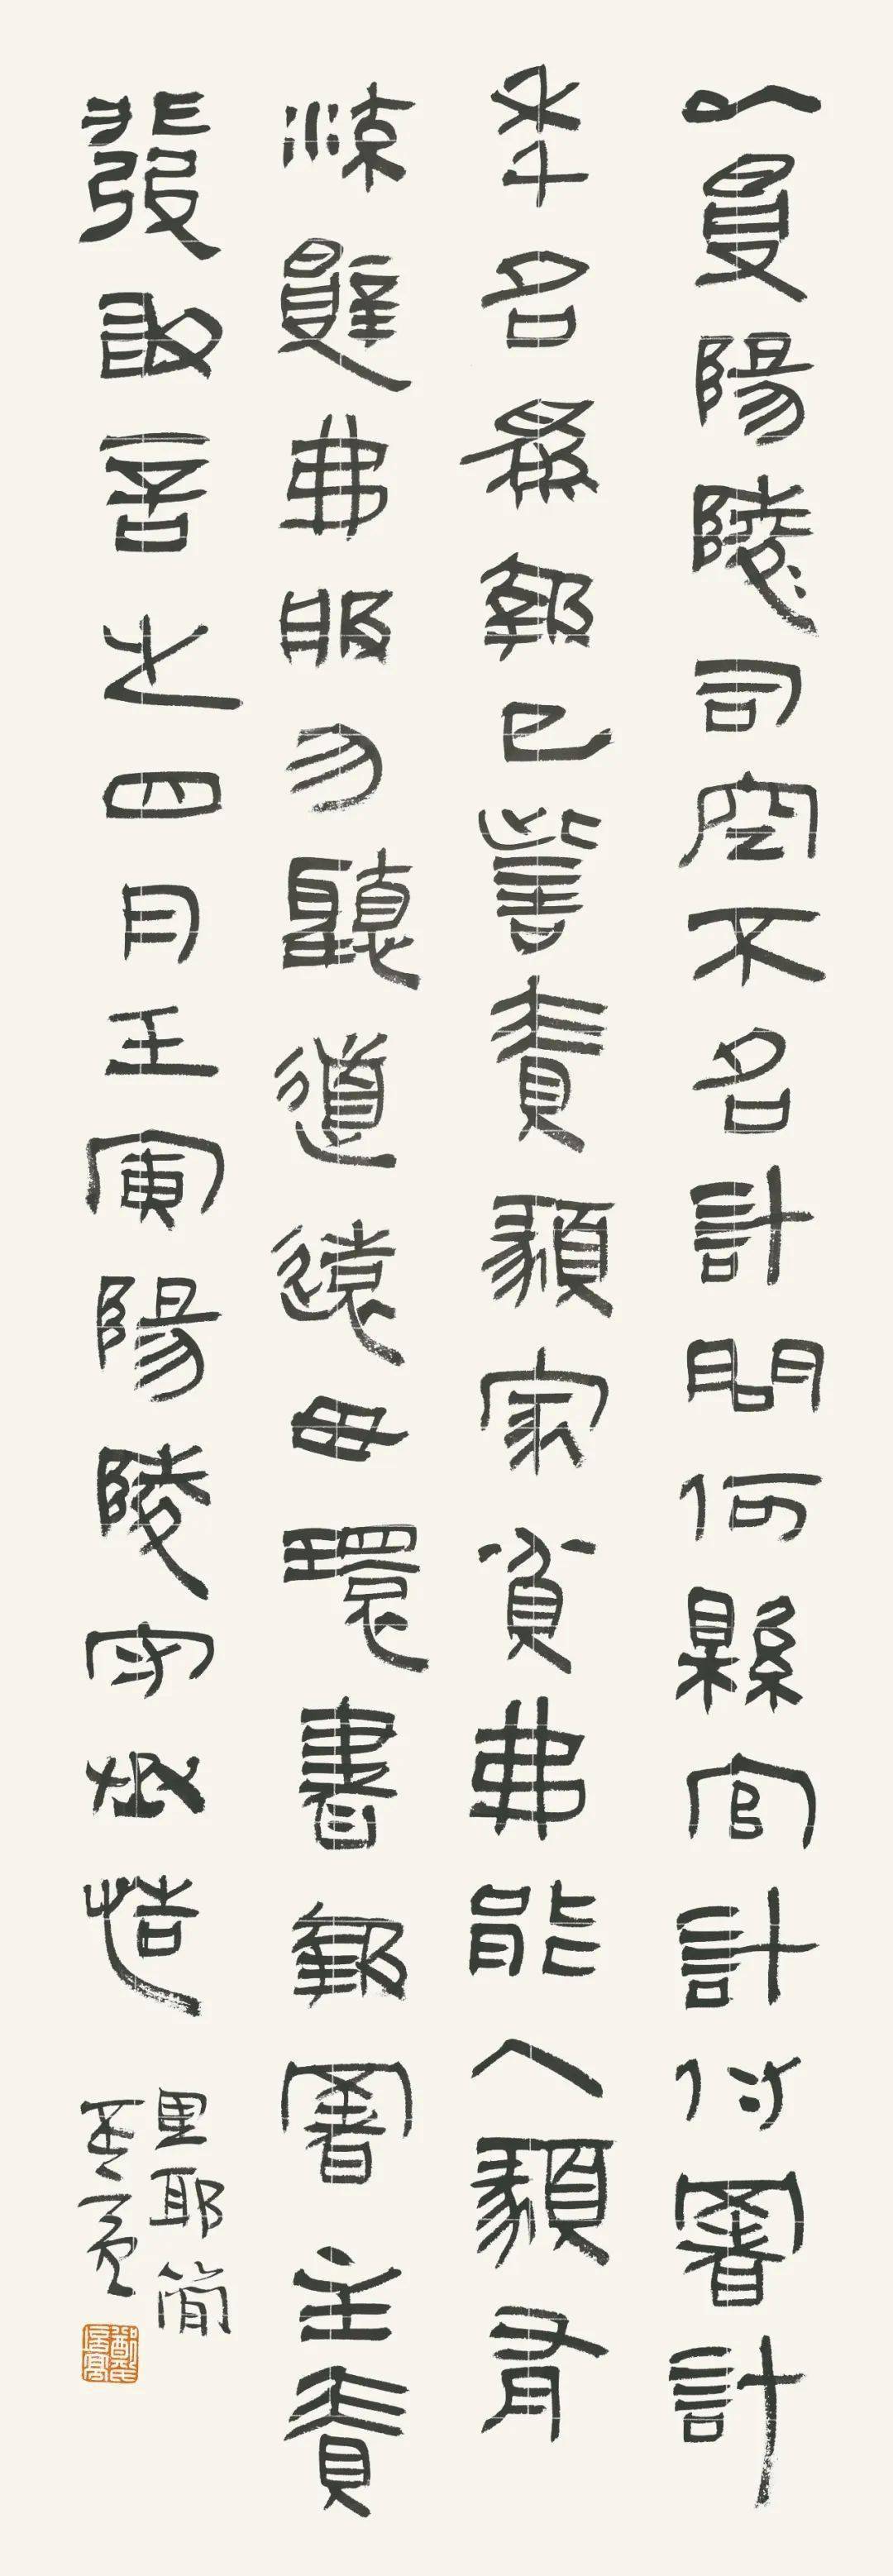 以受陽陵司空不名計問何縣官計付署計
年名為報已訾責䫉家貧弗能入䫉有
弗服勿聽道遠毋環書報署主責
發敢言之四月壬寅陽陵守丞恬
里耶簡